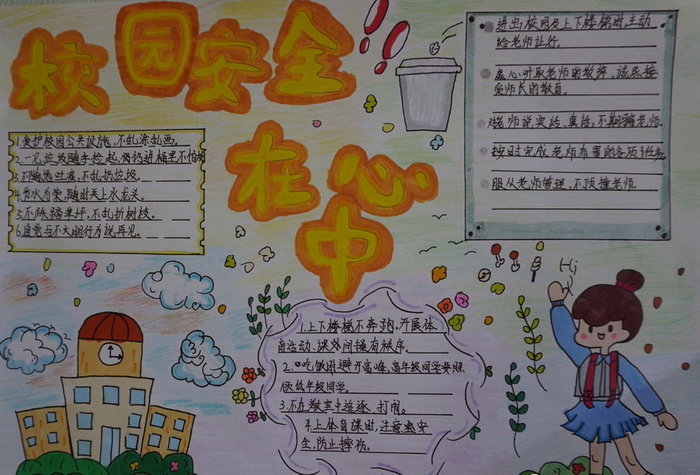 校园安全
在心中
1.爱护校园公共设施,不乱涂乱画,
2.一见垃圾随手捡起,弯腰进桶里不怕
3.不随地吐痰,不乱扔垃圾.
4.节水为荣,随时关上水龙头.
5.不踩踏草坪,不乱折树枝.
6.自觉与不文明行为说再见.
进出校园及上下楼梯时主动
给老师让行.
虚心听取老师的教诲,诚恳接
受师长的教育.
对老师说实话,真话,不欺骗老师.
按时完成老师布置的各项任务
服从老师管理、不顶撞老师.
Hi
1.上下楼梯不奔跑,开展体
育运动,课外间操有秩序.
2.吃饭时避开高峰,高年级同学要照
低年级同学.
3.不在教室中追逐、打闹.
4.上体育课时,注意要安
全,防止摔伤.